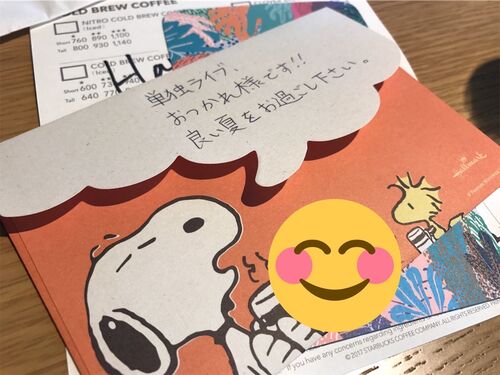 COLD BREW COFFEE
NITRO COLD BREW COFFEE
( Iced )
Short 760 890 1,100
Tall 800 930 1,140
COLD
( Iced
Short 600
Tall 640
Ha
単独ライブ、
おつかれ様です!!
良い夏をお過ごし下さい。
Hallmark
If you have any concerns regarding
© 2017 STARBUCKS COFFEE COMPANY. ALL RIGHTS RESERVED.